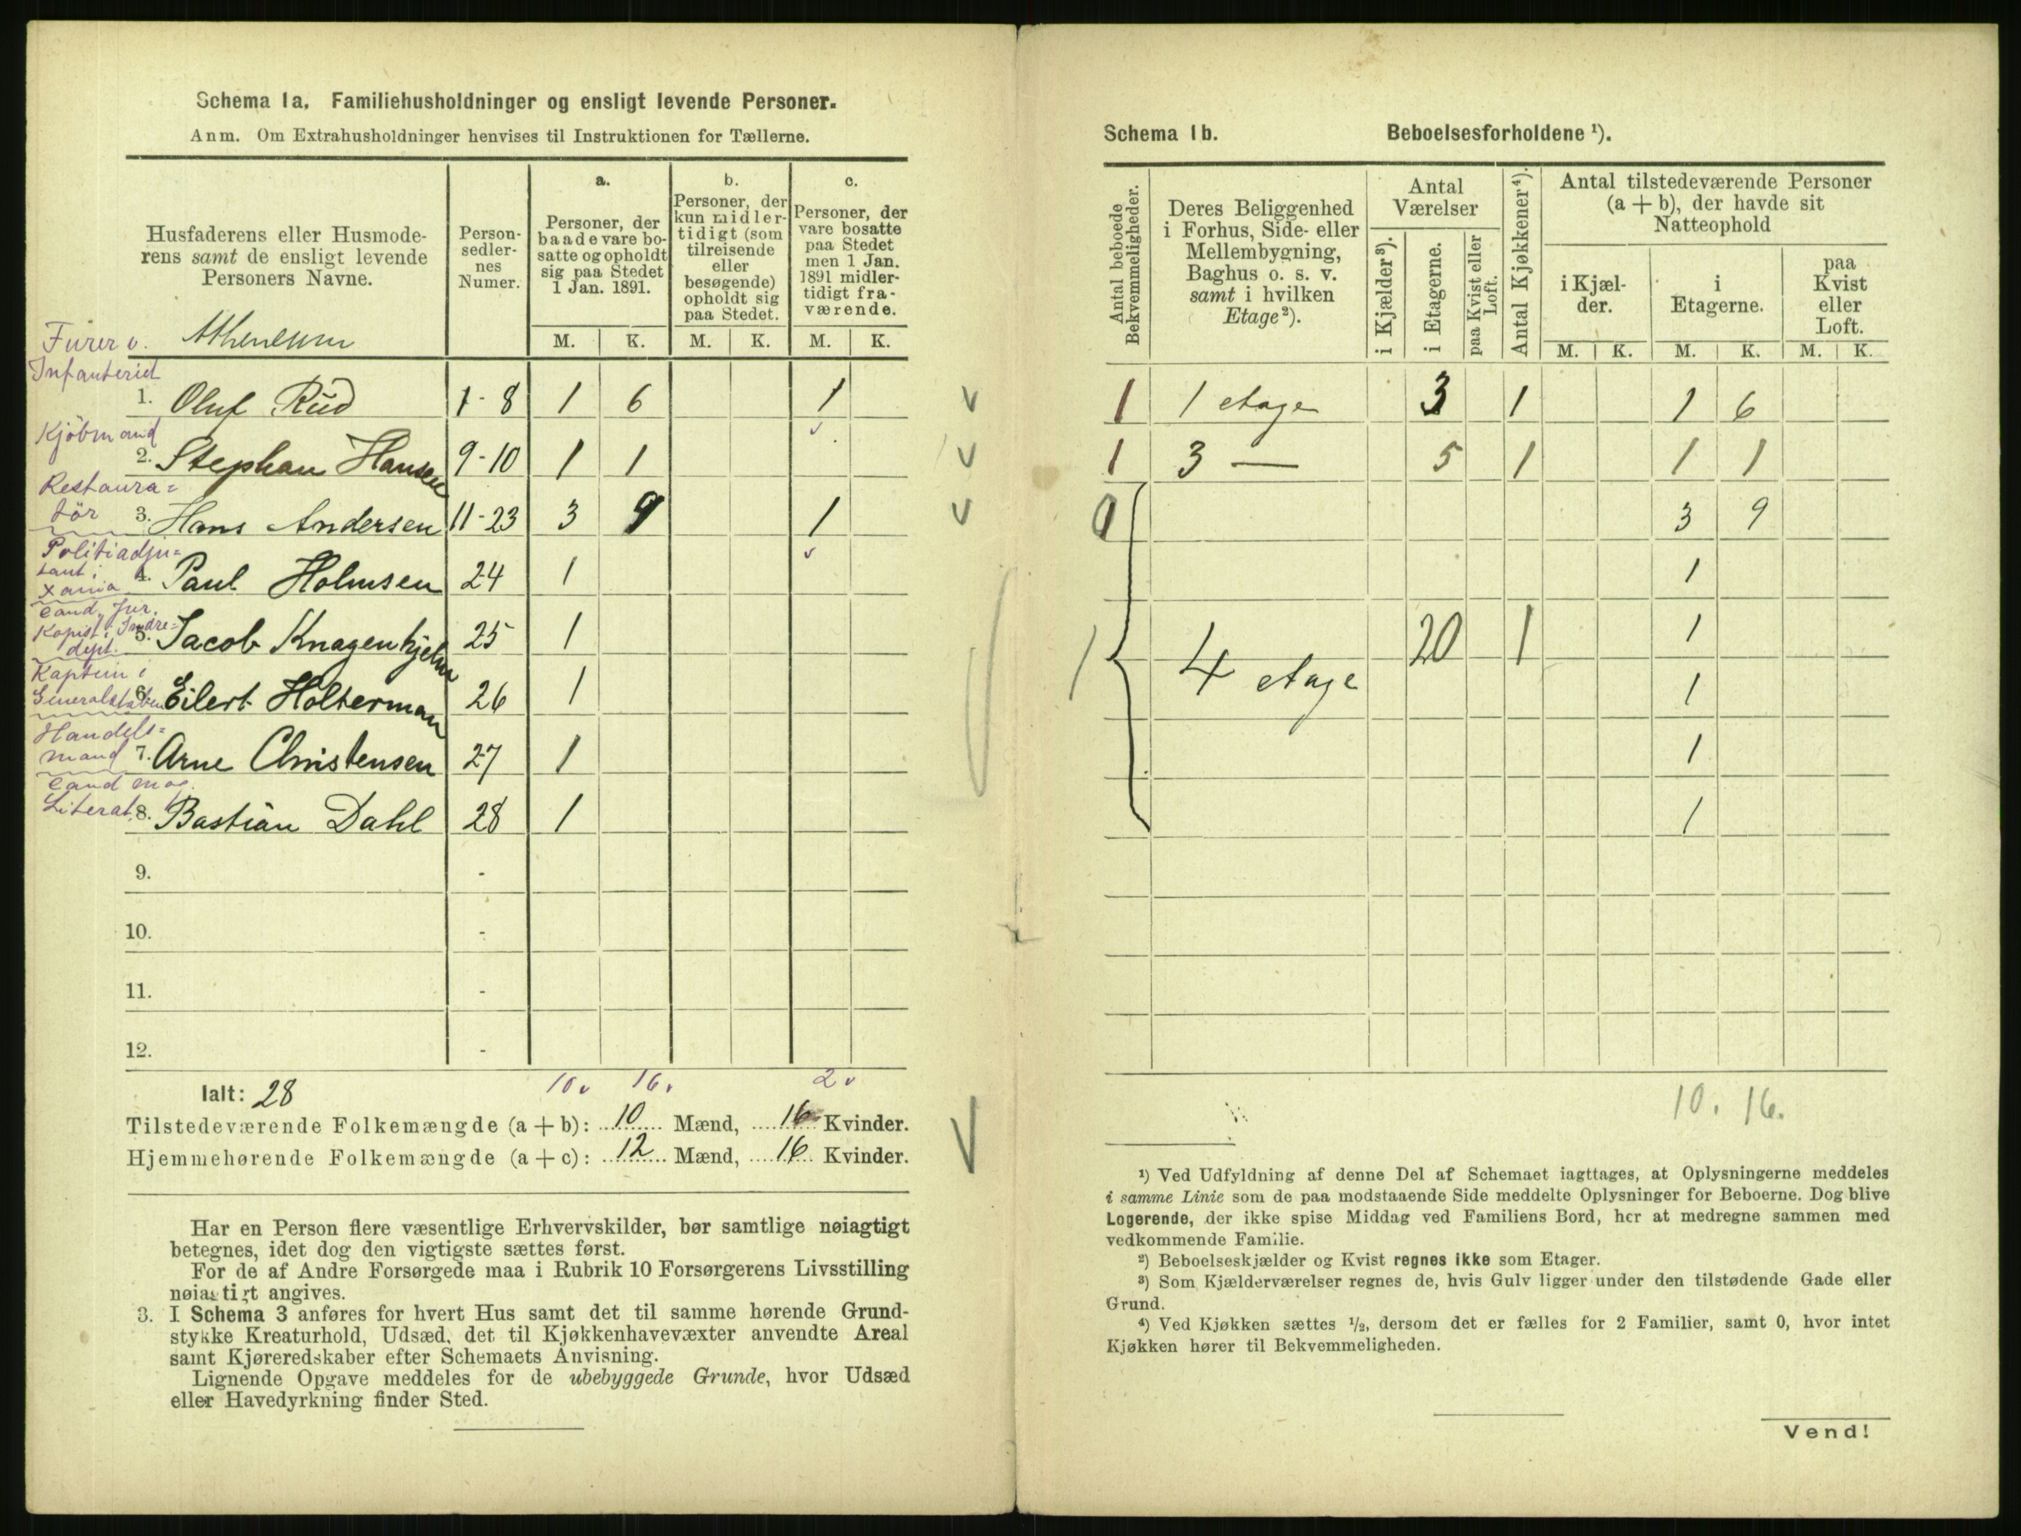 Schema 1a. Familiehusholdninger og ensligt levende Personer.
Anm. Om Extrahusholdninger henvises til Instruktionen for Tællerne.
Husfaderens eller Husmode-
rens samt de ensligt levende
Personers Navne.
Person-
sedler-
nes
Numer.
a.
Personer, der
baade vare bo-
satte og opholdt
sig paa Stedet
1 Jan. 1891.
b.
Personer, der
kun midler-
tidigt (som
tilreisende
eller
besøgende)
opholdt sig
paa Stedet.
c.
Personer, der
vare bosatte
paa Stedet
men 1 Jan.
1891 midler-
tidigt fra-
værende.
M. K. M. K. M. K.
Atheneum
Furer v.
Infanteriet
1. Oluf Rud 1-8 1 6 1
Kjöbmand
2. Stephan Hansen 9-10 1 1
Restaura=
tör
3. Hans Andersen 11-23 3 9 1
Politiadju=
tant i
Xania
4. Paul Holmsen 24 1
Cand. Jur.
Kopist i Indre=
dept.
5. Jacob Knagenhjelm 25 1
Kaptein i
Generalstaben
6. Eilert Holterman 26 1
Handels=
mand
7. Arne Christensen 27 1
Cand mag.
Literat.
8. Bastian Dahl 28 1
9. -
10. -
11. -
12. -
Ialt: 28 10 16 2
Tilstedeværende Folkemængde (a + b): 10 Mænd, 16 Kvinder.
Hjemmehørende Folkemængde (a + c): 12 Mænd, 16 Kvinder.
Har en Person flere væsentlige Erhvervskilder, bør samtlige nøiagtigt
betegnes, idet dog den vigtigste sættes først.
For de af Andre Forsørgede maa i Rubrik 10 Forsørgerens Livsstilling
nøiagtigt angives.
3. I Schema 3 anføres for hvert Hus samt det til samme hørende Grund-
stykke Kreaturhold, Udsæd, det til Kjøkkenhavevæxter anvendte Areal
samt Kjøreredskaber efter Schemaets Anvisning.
Lignende Opgave meddeles for de ubebyggede Grunde, hvor Udsæd
eller Havedyrkning finder Sted.
Schema 1b. Beboelsesforholdene ¹).
Antal beboede
Bekvemmeligheder.
Deres Beliggenhed
i Forhus, Side- eller
Mellembygning,
Baghus o. s. v.
samt i hvilken
Etage²).
Antal
Værelser
i Kjælder³).
i Etagerne.
paa Kvist eller
Loft.
Antal Kjøkkener⁴).
Antal tilstedeværende Personer
(a + b), der havde sit
Natteophold
i Kjæl-
der.
i
Etagerne.
paa
Kvist
eller
Loft.
M. K. M. K. M. K.
1 1 etage 3 1 1 6
1 3 — 5 1 1 1
3 9
1
1 4 etage 20 1 1
1
1
1
10. 16.
¹) Ved Udfyldning af denne Del af Schemaet iagttages, at Oplysningerne meddeles
i samme Linie som de paa modstaaende Side meddelte Oplysninger for Beboerne. Dog blive
Logerende, der ikke spise Middag ved Familiens Bord, her at medregne sammen med
vedkommende Familie.
²) Beboelseskjælder og Kvist regnes ikke som Etager.
³) Som Kjælderværelser regnes de, hvis Gulv ligger under den tilstødende Gade eller
Grund.
⁴) Ved Kjøkken sættes ½, dersom det er fælles for 2 Familier, samt 0, hvor intet
Kjøkken hører til Bekvemmeligheden.
Vend!